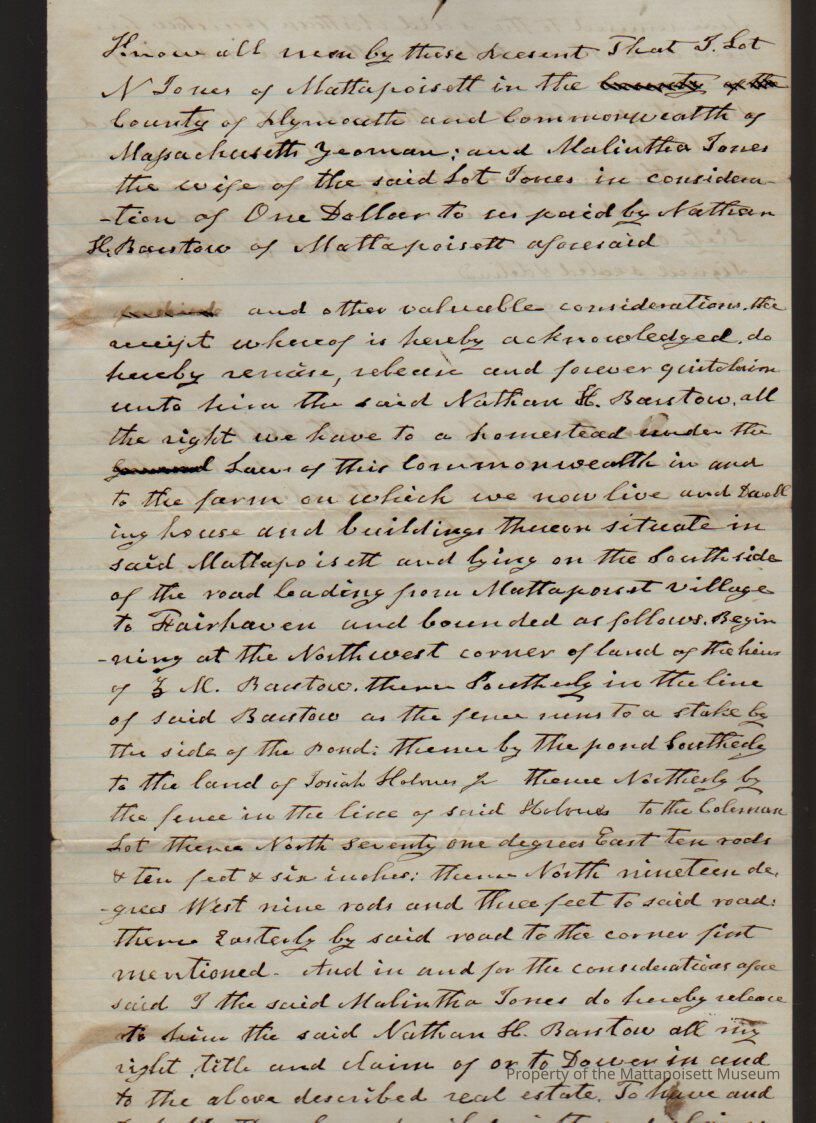 Know all men by these Present That I. Lot
N Jones of Mattapoisett in the County of the
County of Plymouth and Commonwealth of
Massachusetts Yeoman; and Malintha Jones
the wife of the said Lot Jones in considera-
-tion of One Dollar to us paid by Nathan
H. Barstow of Mattapoisett aforesaid
and other valuable considerations. the
receipt whereof is hereby acknowledged. do
hereby remise, release and forever quitclaim
unto him the said Nathan H. Barstow. all
the right we have to a homestead under the
general Laws of this Commonwealth in and
to the farm on which we now live and Dwell
ing house and buildings thereon situate in
said Mattapoisett and lying on the South side
of the road leading from Mattapoisett village
to Fairhaven and bounded as follows. Begin
-ning at the Northwest corner of land of the heirs
of Z M. Barstow. thence Southerly in the line
of said Barstow as the fence runs to a stake by
the side of the Pond: thence by the pond Southerly
to the land of Josiah Holmes Jr thence Northerly by
the fence in the line of said Holmes to the Coleman
Lot thence North seventy one degrees East ten rods
& ten feet & six inches: thence North nineteen de.
-grees West nine rods and three feet to said road:
thence Easterly by said road to the corner first
mentioned. And in and for the considerations afore
said I the said Malintha Jones do hereby release
to him the said Nathan H. Barstow all my
right, title and claim of or to Dower in and
to the above described real estate. To have and
Property of the Mattapoisett Museum